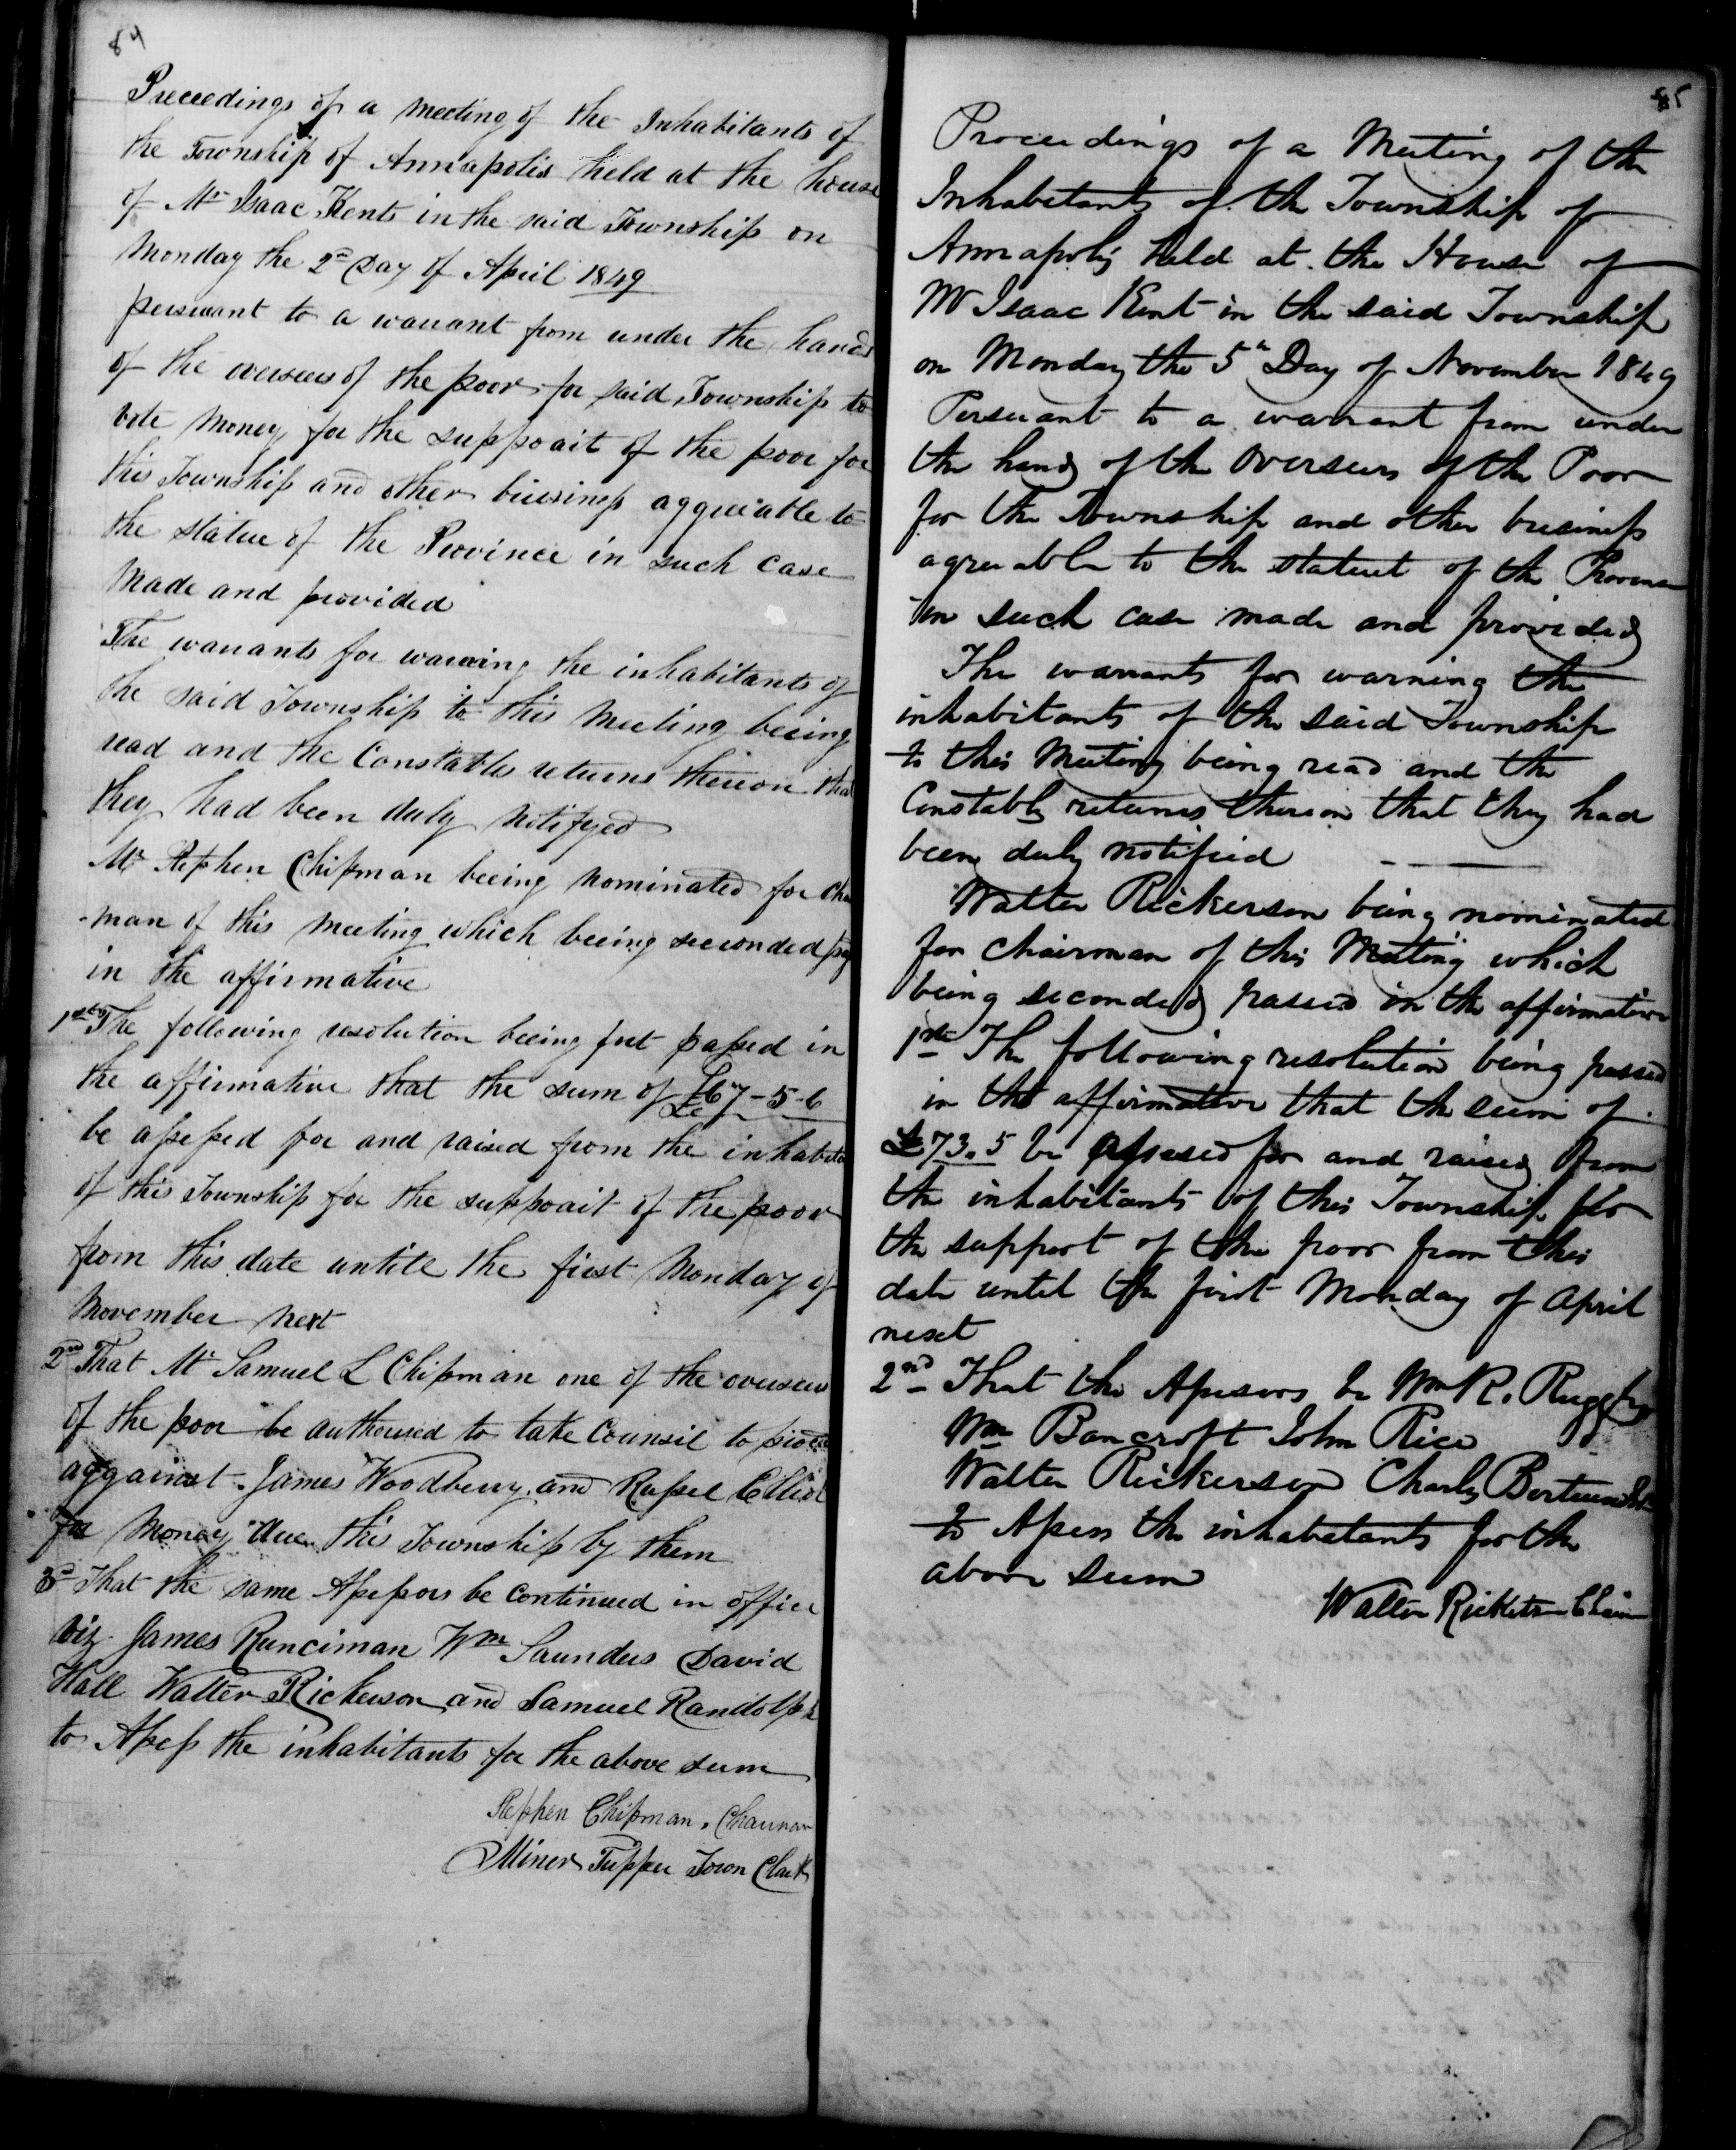 84
Preceedings of a meeting of the Inhabitants of
the Township of Annapolis held at the house
of Mr Isaac Kents in the said Township on
Monday the 2d Day of April 1849
persuant to a warrant from under the hands
of the overseers of the poor for said Township to
vote money for the suppoait of the poor for
this Township and other buisiness aggreiable to
the statue of the Province in such case
made and provided
The warrants for warning the inhabitants of
the said Township to this meeting beeing
read and the Constables returns thereon that
they had been duly notifyed
Mr Stephen Chipman beeing nominated for chair
-man of this meeting which beeing seconded
in the affirmative
1stly The following resolution beeing put passed in
the affirmative that the sum of £67-5-6
be assessed for and raised from the
of this Township for the suppoait of the poor
from this date untill the first Monday of
November next
2nd That Mr Samuel L Chipman one of the overseers
of the poor be authorised to take Counsil to
aggainst James Woodberry and Russel Elliot
for money due this Township by them
3d That the same Assessors be continued in office
viz James Runciman Wm Saunders David
Hall Walter Rickerson and Samuel Randolph
to Assess the inhabitants for the above sum
Stephen Chipman, Chairman
Miner Tupper Town Clark
85
Proceedings of a Meeting of the
Inhabetants of the Township of
Annapolis held at the House of
Mr Isaac Kent in the said Township
on Monday the 5th Day of November 1849
Persuant to a warrant from under
the hands of the Overseers of the Poor
for the Township and other business
agreeable to the statuet of the Province
in such case made and provided
The warrants for warning the
inhabitants of the said Township
to this Meeting being read and the
Constables returns thereon that they had
been duly notified
Walter Rickerson being nominated
for Chairman of this Meeting which
being seconded passed in the affirmative
1st The following resolution being passed
in the affirmative that the sum of
£73.5 be assessed for and raised from
the inhabitants of this Township for
the support of the poor from this
date until the first Monday of April
next
2nd That the Assesors be Wm R. Ruggles
Wm Bancroft John Rice
Walter Rickerson Charles
to Assess the inhabetants for the
above sum
Walter Ricketson Chairn